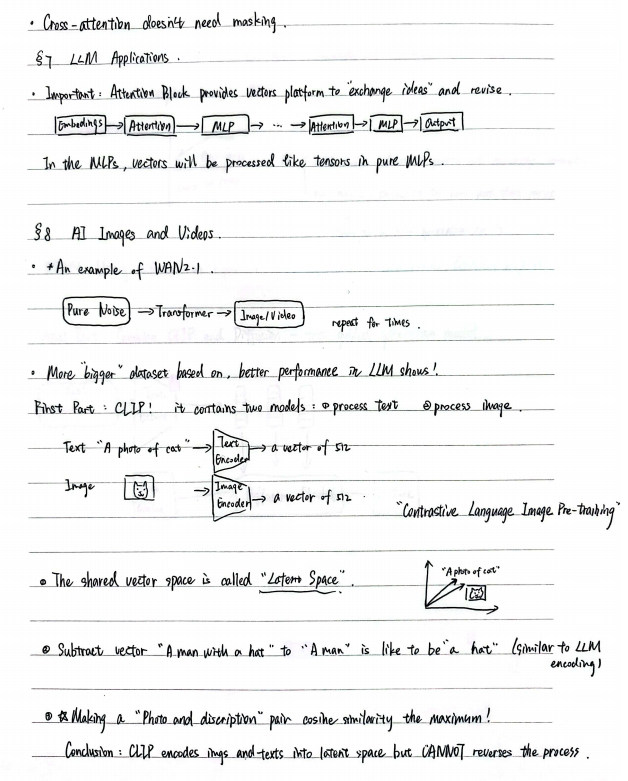 • Cross-attention doesn't need masking.
§7 LLM Applications.
• Important: Attention Block provides vectors platform to "exchange ideas" and revise.
Embedings → Attention → MLP → ... → Attention → MLP → Output
In the MLPs, vectors will be processed like tensors in pure MLPs.
§8 AI Images and Videos.
• *An example of WAN2.1.
Pure Noise → Transformer → Image/Video repeat for times.
• More "bigger" dataset based on, better performance in LLM shows!
First Part: CLIP! it contains two models: ① process text ② process image.
Text "A photo of cat" → Text Encoder → a vector of 512
Image → Image Encoder → a vector of 512.
"Contrastive Language Image Pre-training"
① The shared vector space is called "Latent Space".
"A photo of cat"
② Subtract vector "A man with a hat" to "A man" is like to be "a hat" (similar to LLM
encoding)
③ ☆ Making a "Photo and discription" pair cosine similarity the maximum!
Conclusion: CLIP encodes imgs and texts into latent space but CANNOT reverses the process.